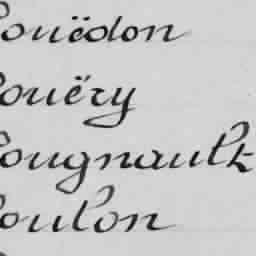 Couëdon
Couëry
Cougnault
Coulon